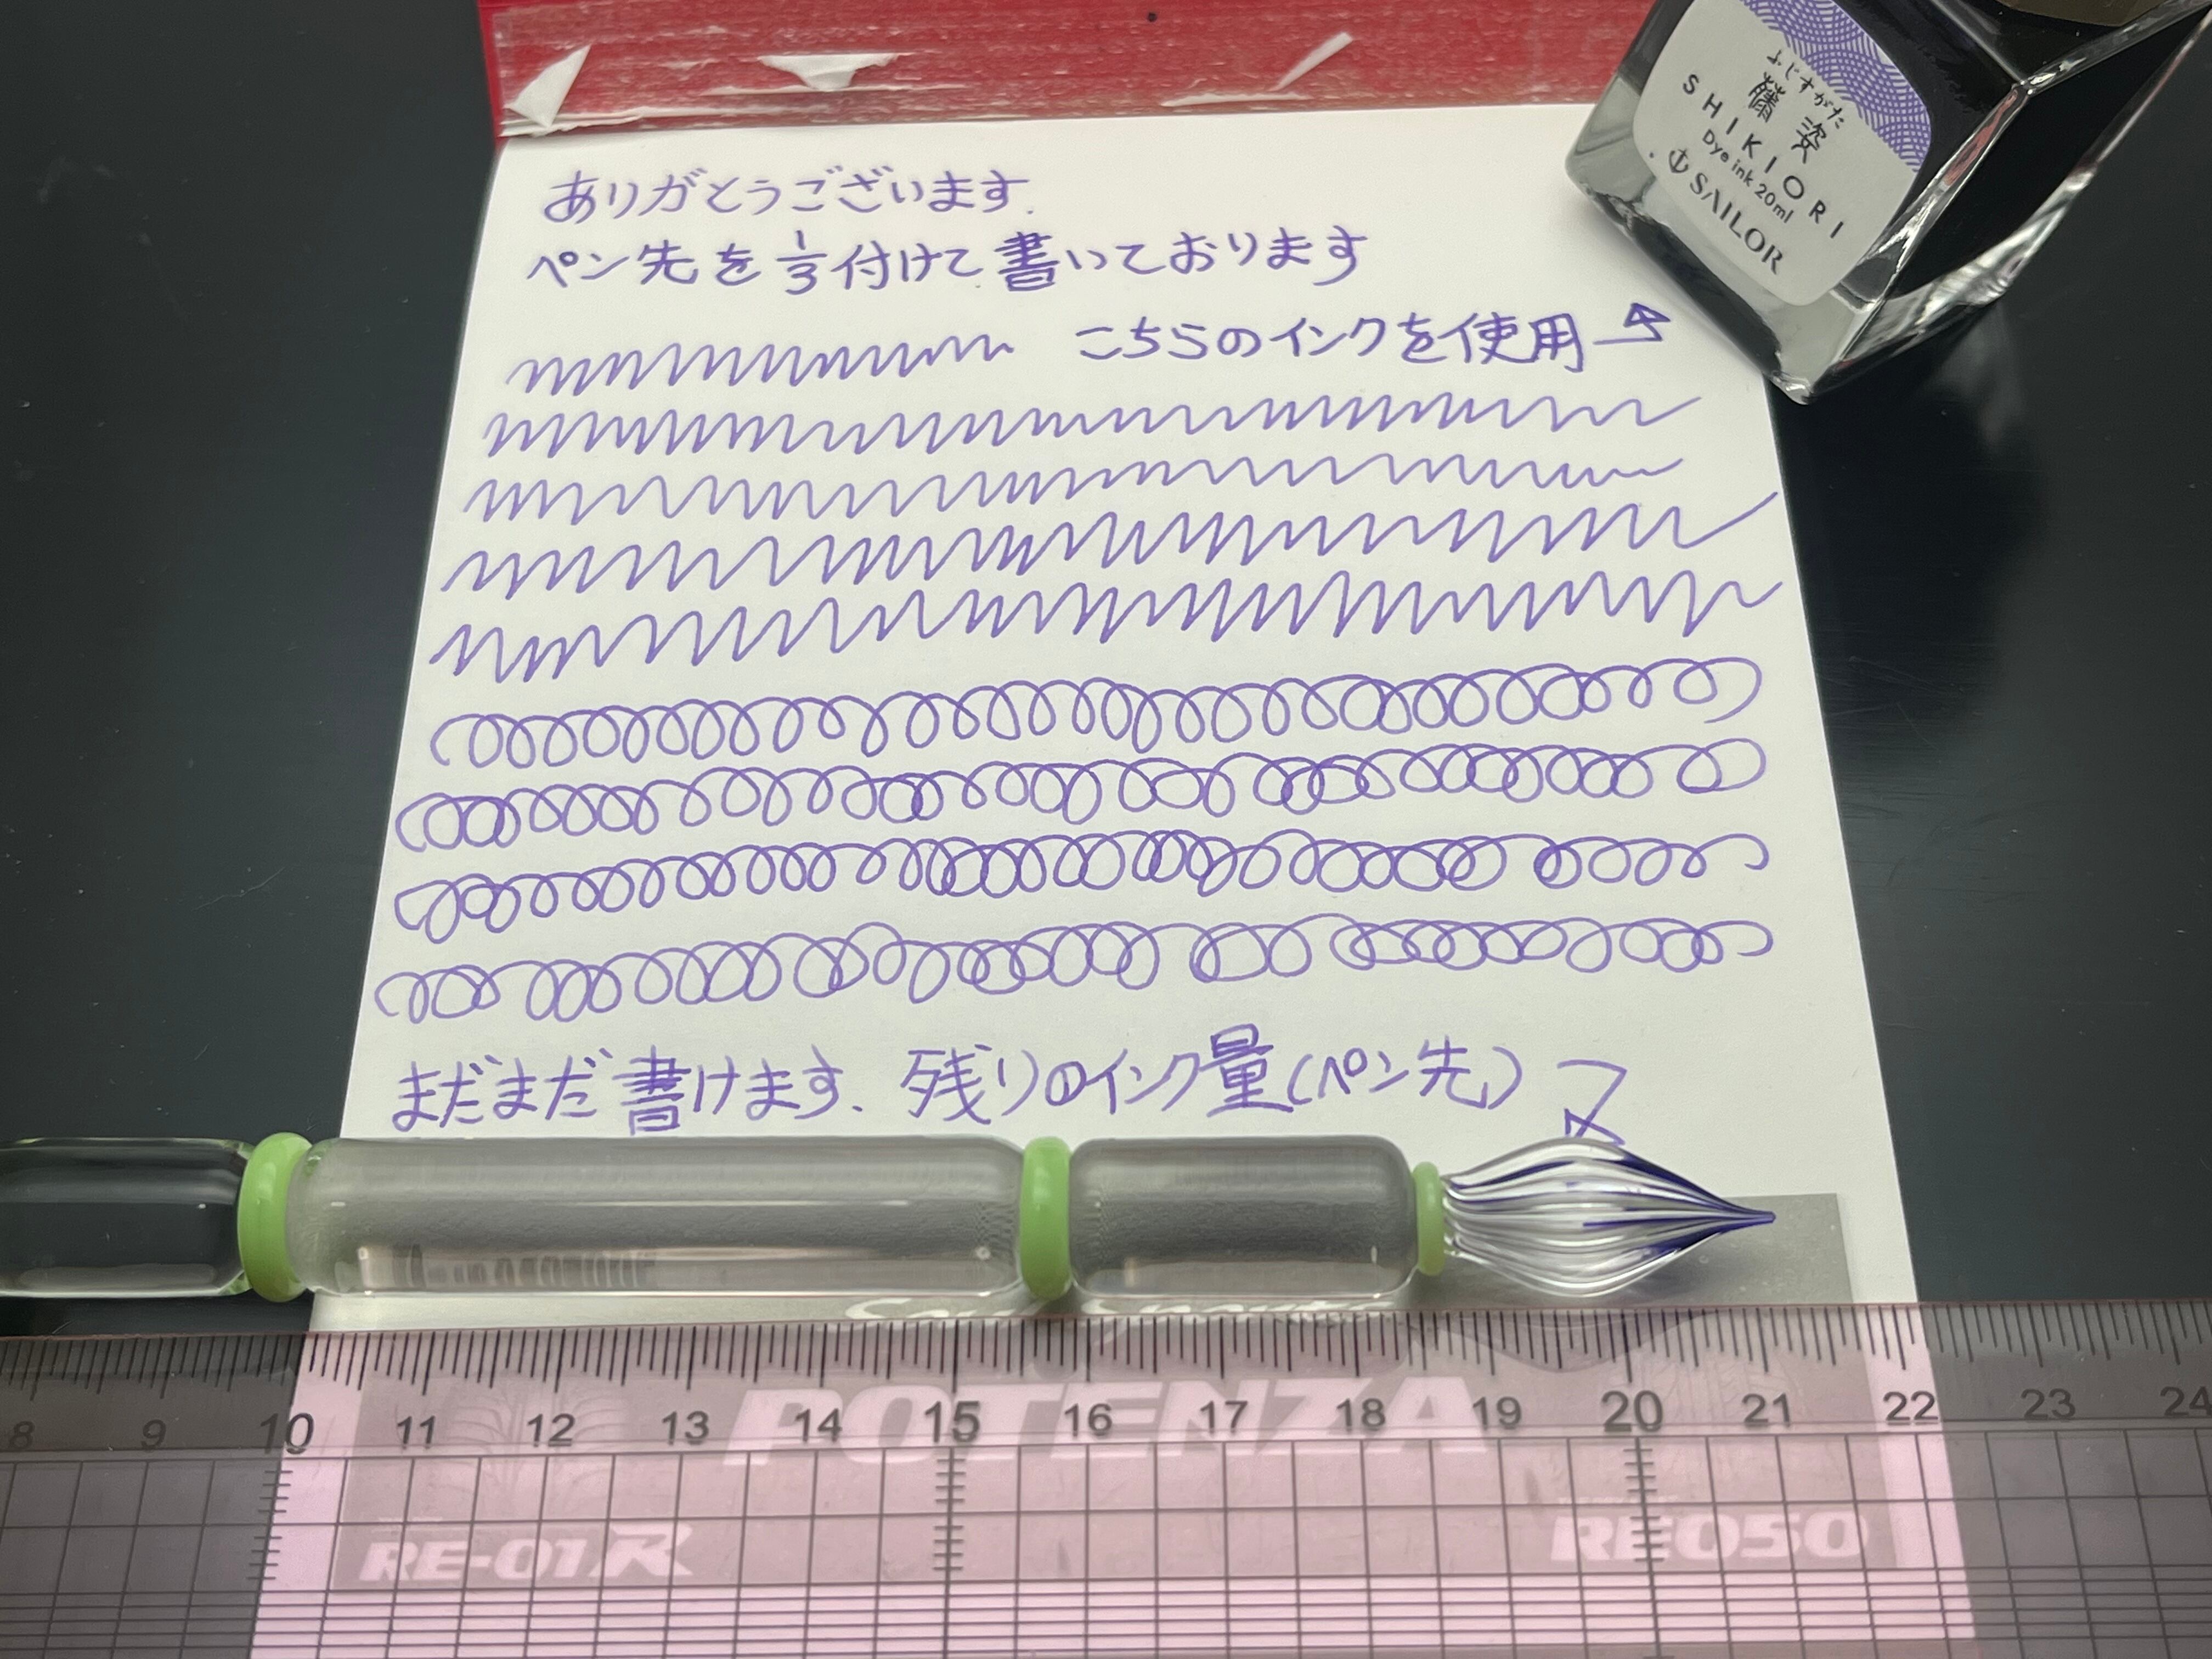 ふじすがた
藤姿
SHIKIORI
Dye ink 20ml
SAILOR
ありがとうございます.
ペン先を1/3付けて書いております
こちらのインクを使用→
まだまだ書けます. 残りのインク量(ペン先)
8 9 10 11 12 13 14 15 16 17 18 19 20 21 22 23 24
POTENZA
RE-01R RE050